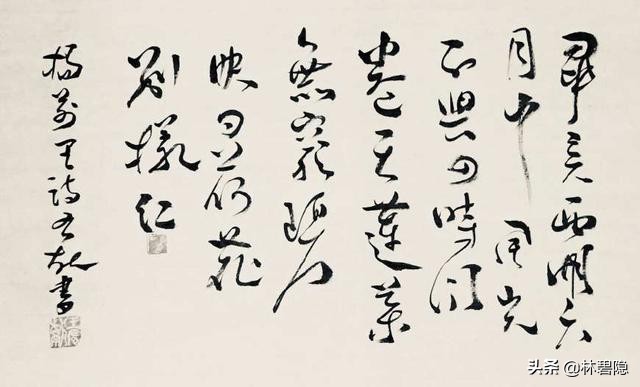 畢竟西湖六
月中風光
不與四時同
天蓮葉
無窮碧
映日荷花
別樣紅
楊萬里詩書
头条 @林碧隐